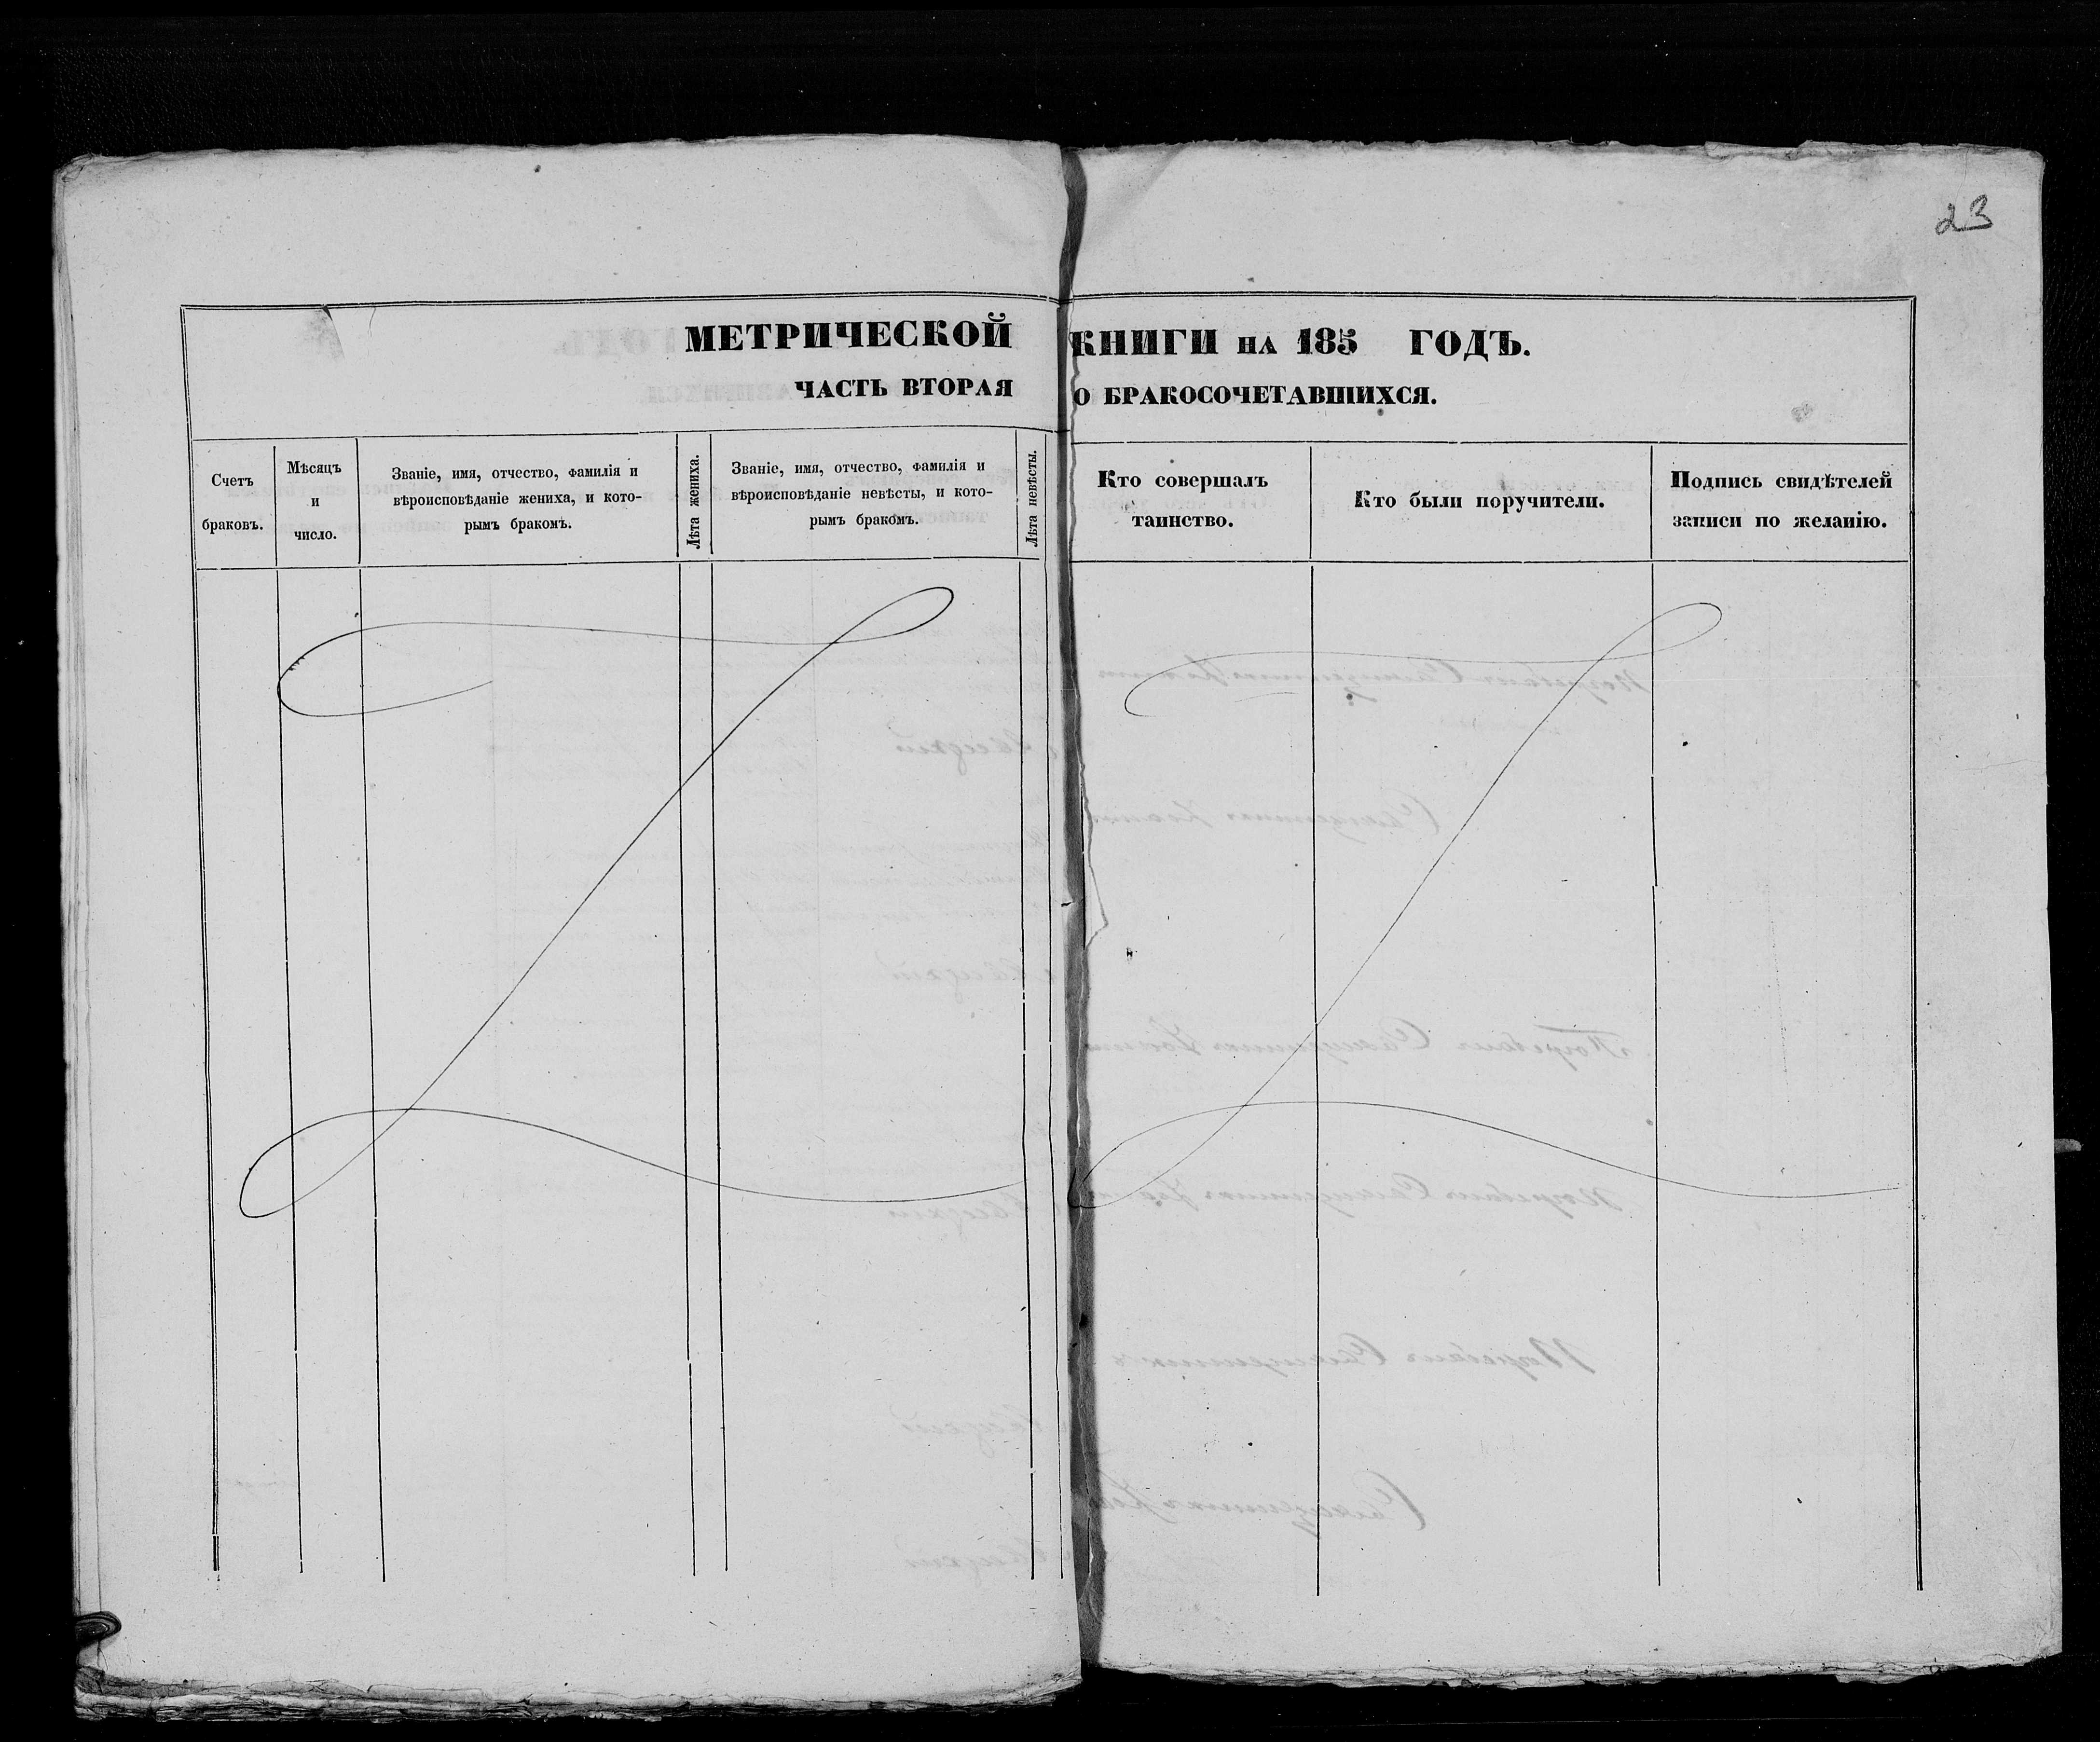 23
МЕТРИЧЕСКОЙ КНИГИ НА 185 ГОДЪ.
ЧАСТЬ ВТОРАЯ О БРАКОСОЧЕТАВШИХСЯ.
Счетъ
браковъ.
Мѣсяцъ
и
число.
Званіе, имя, отчество, фамилія и
вѣроисповѣданіе жениха, и кото-
рымъ бракомъ.
Лѣта жениха.
Званіе, имя, отчество, фамилія и
вѣроисповѣданіе невѣсты, и кото-
рымъ бракомъ.
Лѣта невѣсты.
Кто совершалъ
таинство.
Кто были поручители.
Подпись свидѣтелей
записи по желанію.